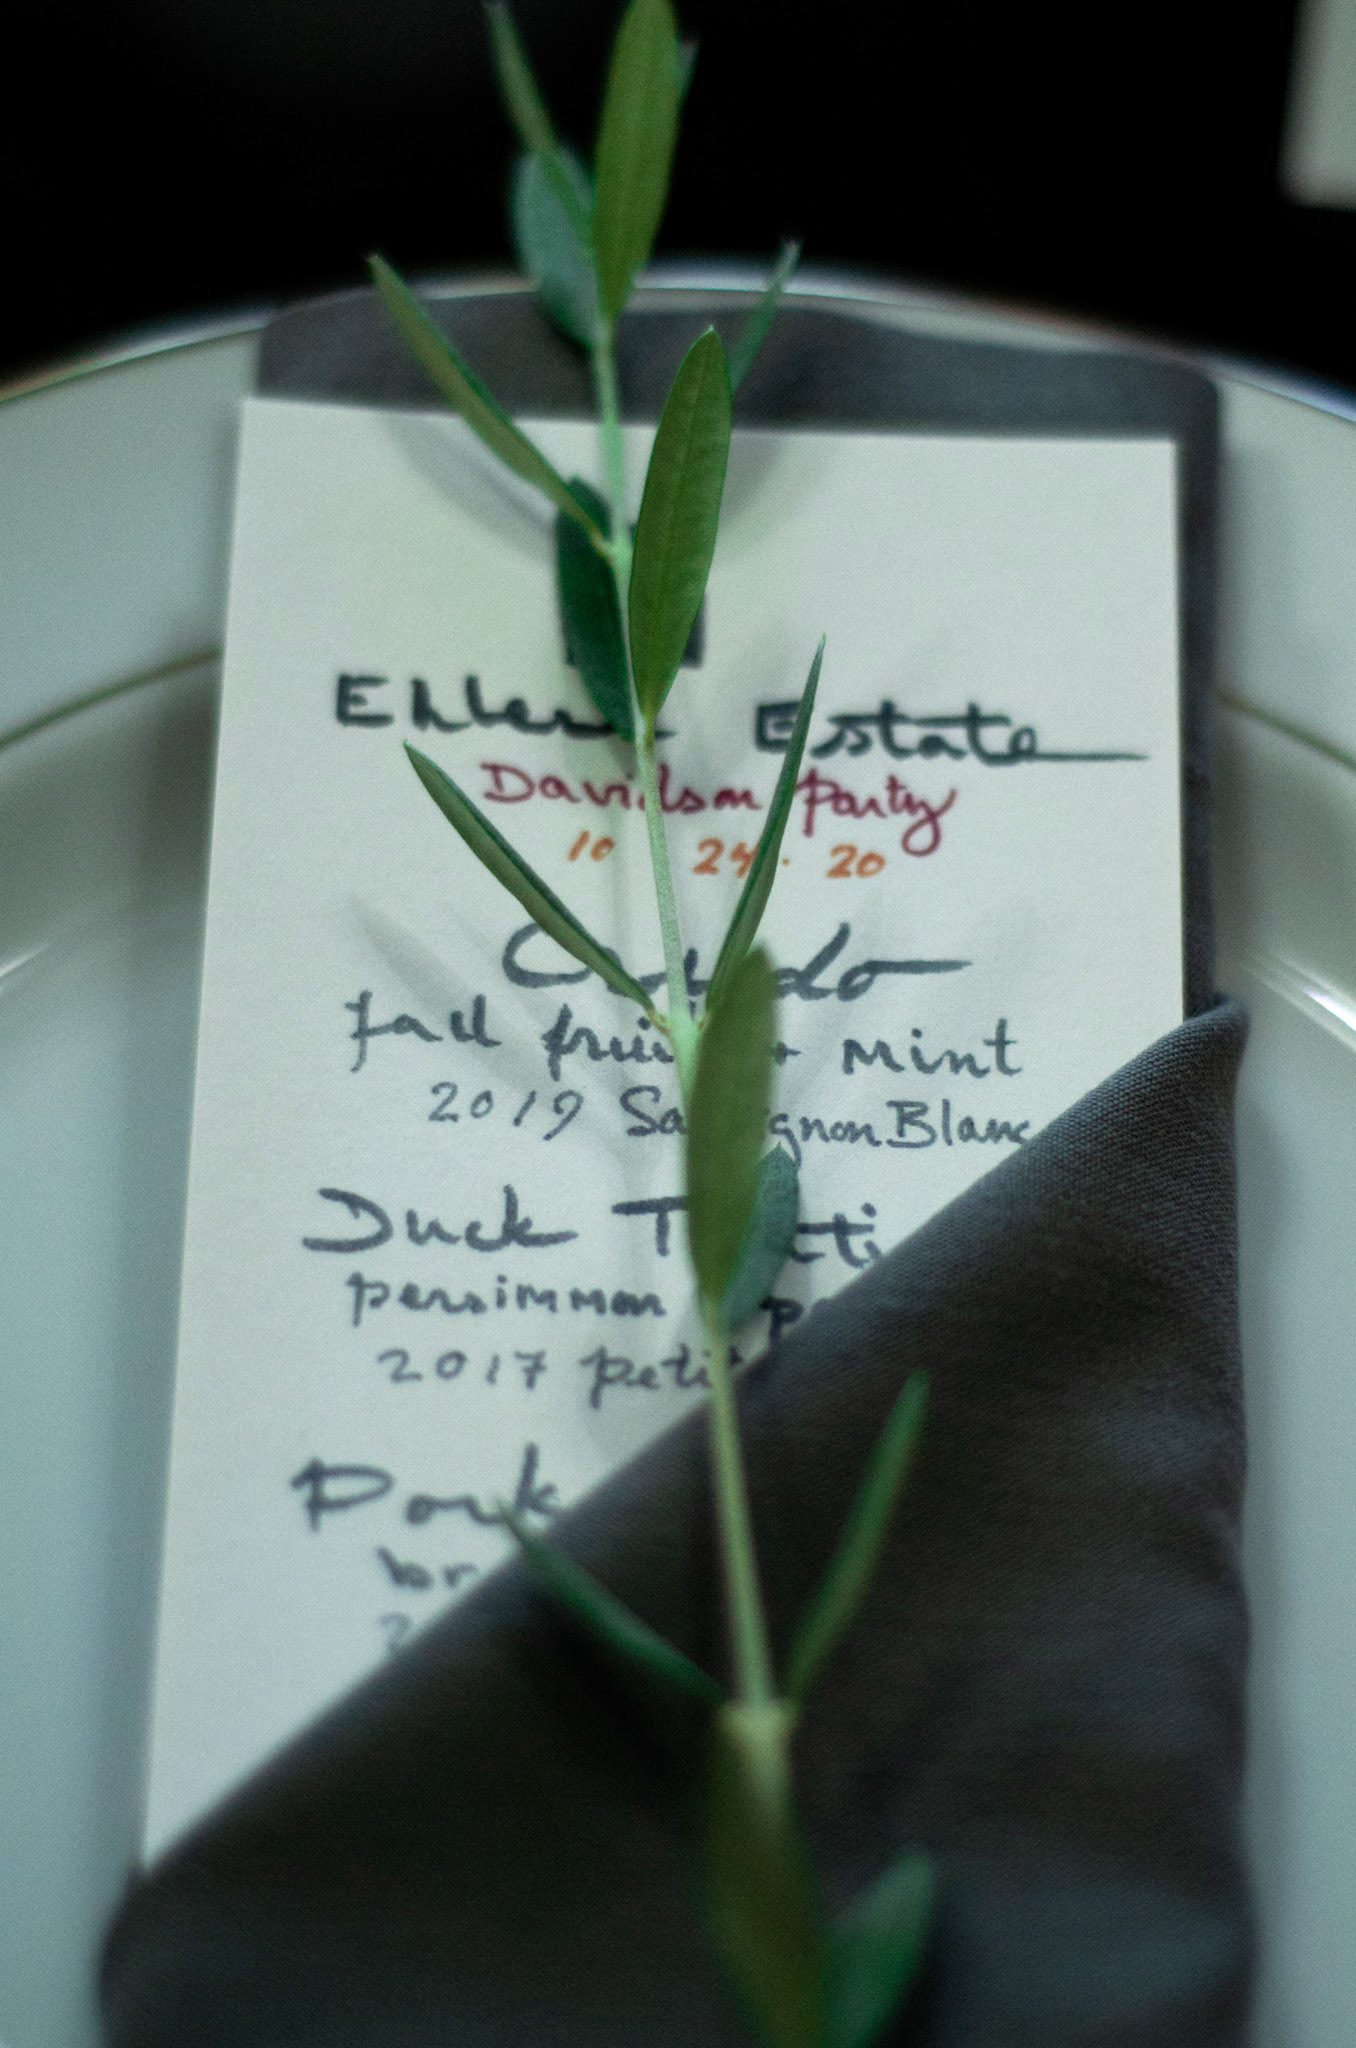 Ehlers Estate
Davidson Party
10 24. 20
Crudo
fall fruit + mint
2019 Sauvignon Blanc
Duck
persimmon
2017 petit
Pork